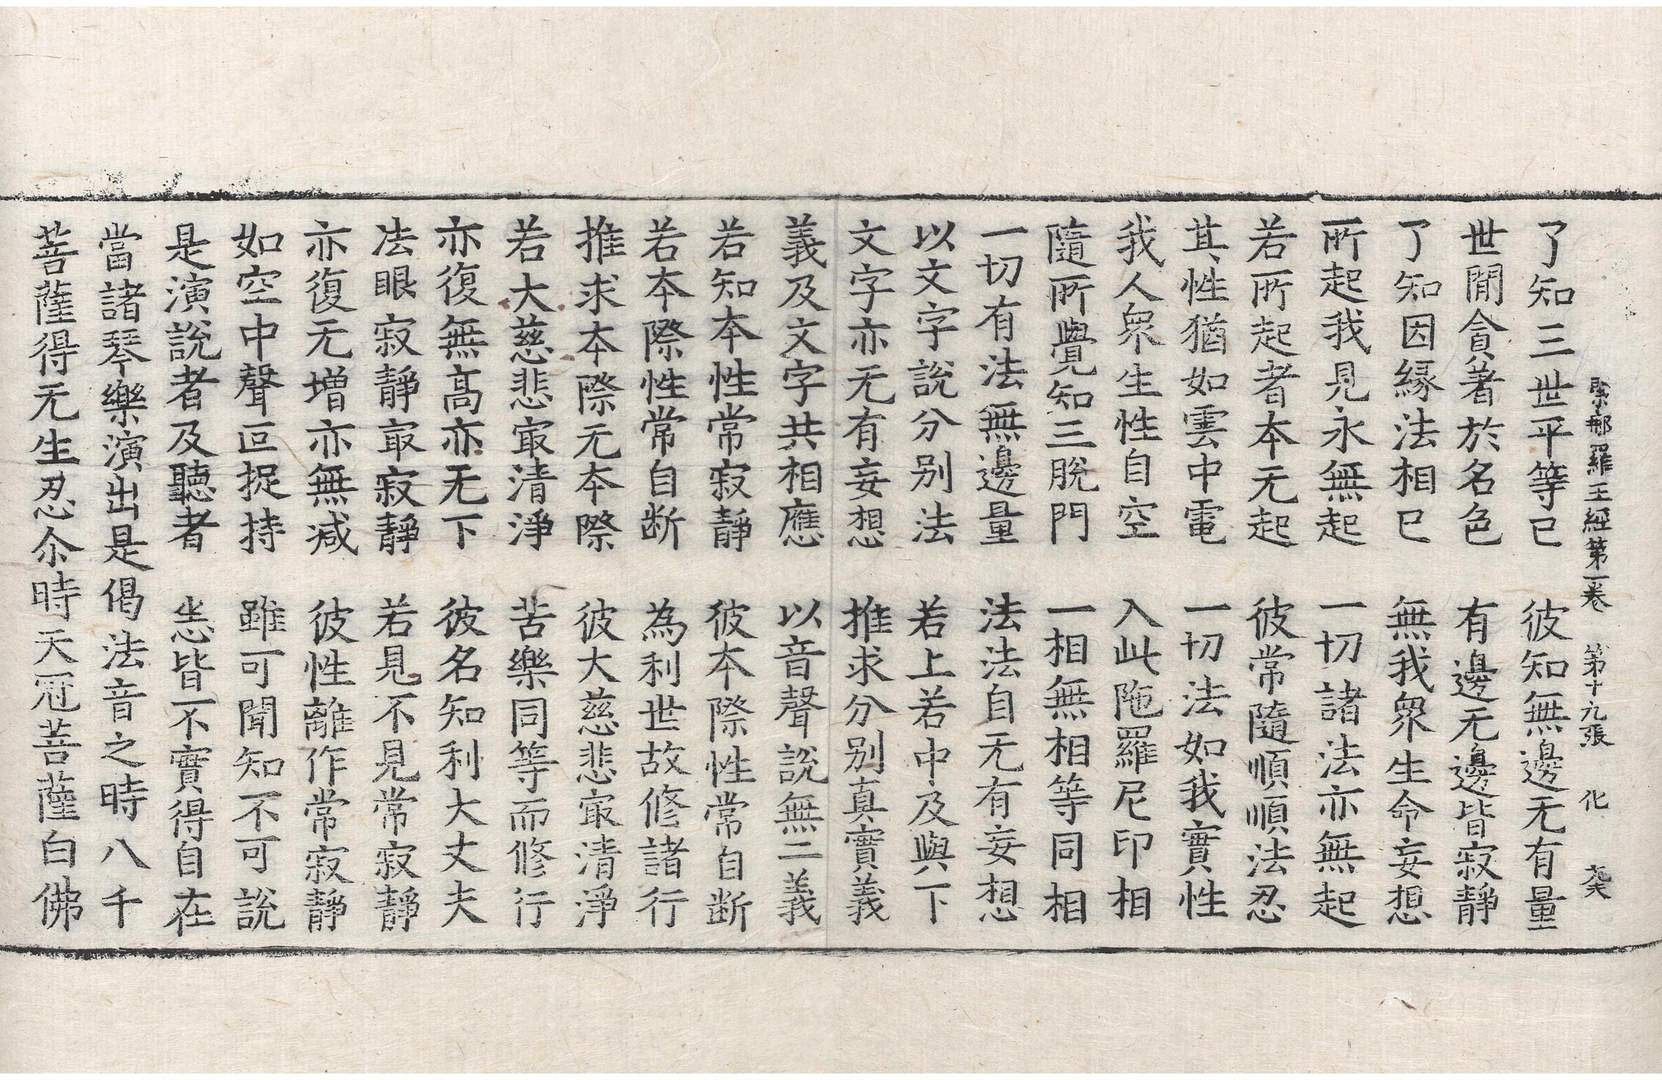 緊那羅王經第一卷 第十九張 化
了知三世平等已 彼知無邊无有量
世間貪著於名色 有邊无邊皆寂靜
了知因縁法相已 無我衆生命妄想
所起我見永無起 一切諸法亦無起
若所起者本无起 彼常隨順順法忍
其性猶如雲中電 一切法如我實性
我人衆生性自空 入此陁羅尼印相
隨所覺知三脫門 一相無相等同相
一切有法無邊量 法法自无有妄想
以文字說分別法 若上若中及與下
文字亦无有妄想 推求分别真實義
義及文字共相應 以音聲說無二義
若知本性常寂靜 彼本際性常自断
若本際性常自断 為利世故修諸行
推求本際无本際 彼大慈悲㝡清淨
若大慈悲㝡清淨 苦樂同等而修行
亦復無髙亦无下 彼名知利大丈夫
法眼寂靜㝡寂靜 若見不見常寂靜
亦復无增亦無减 彼性離作常寂靜
如空中聲叵捉持 雖可聞知不可說
是演說者及聽者 悉皆不實得自在
當諸琴樂演出是偈法音之時八千
菩薩得无生忍尒時天冠菩薩白佛